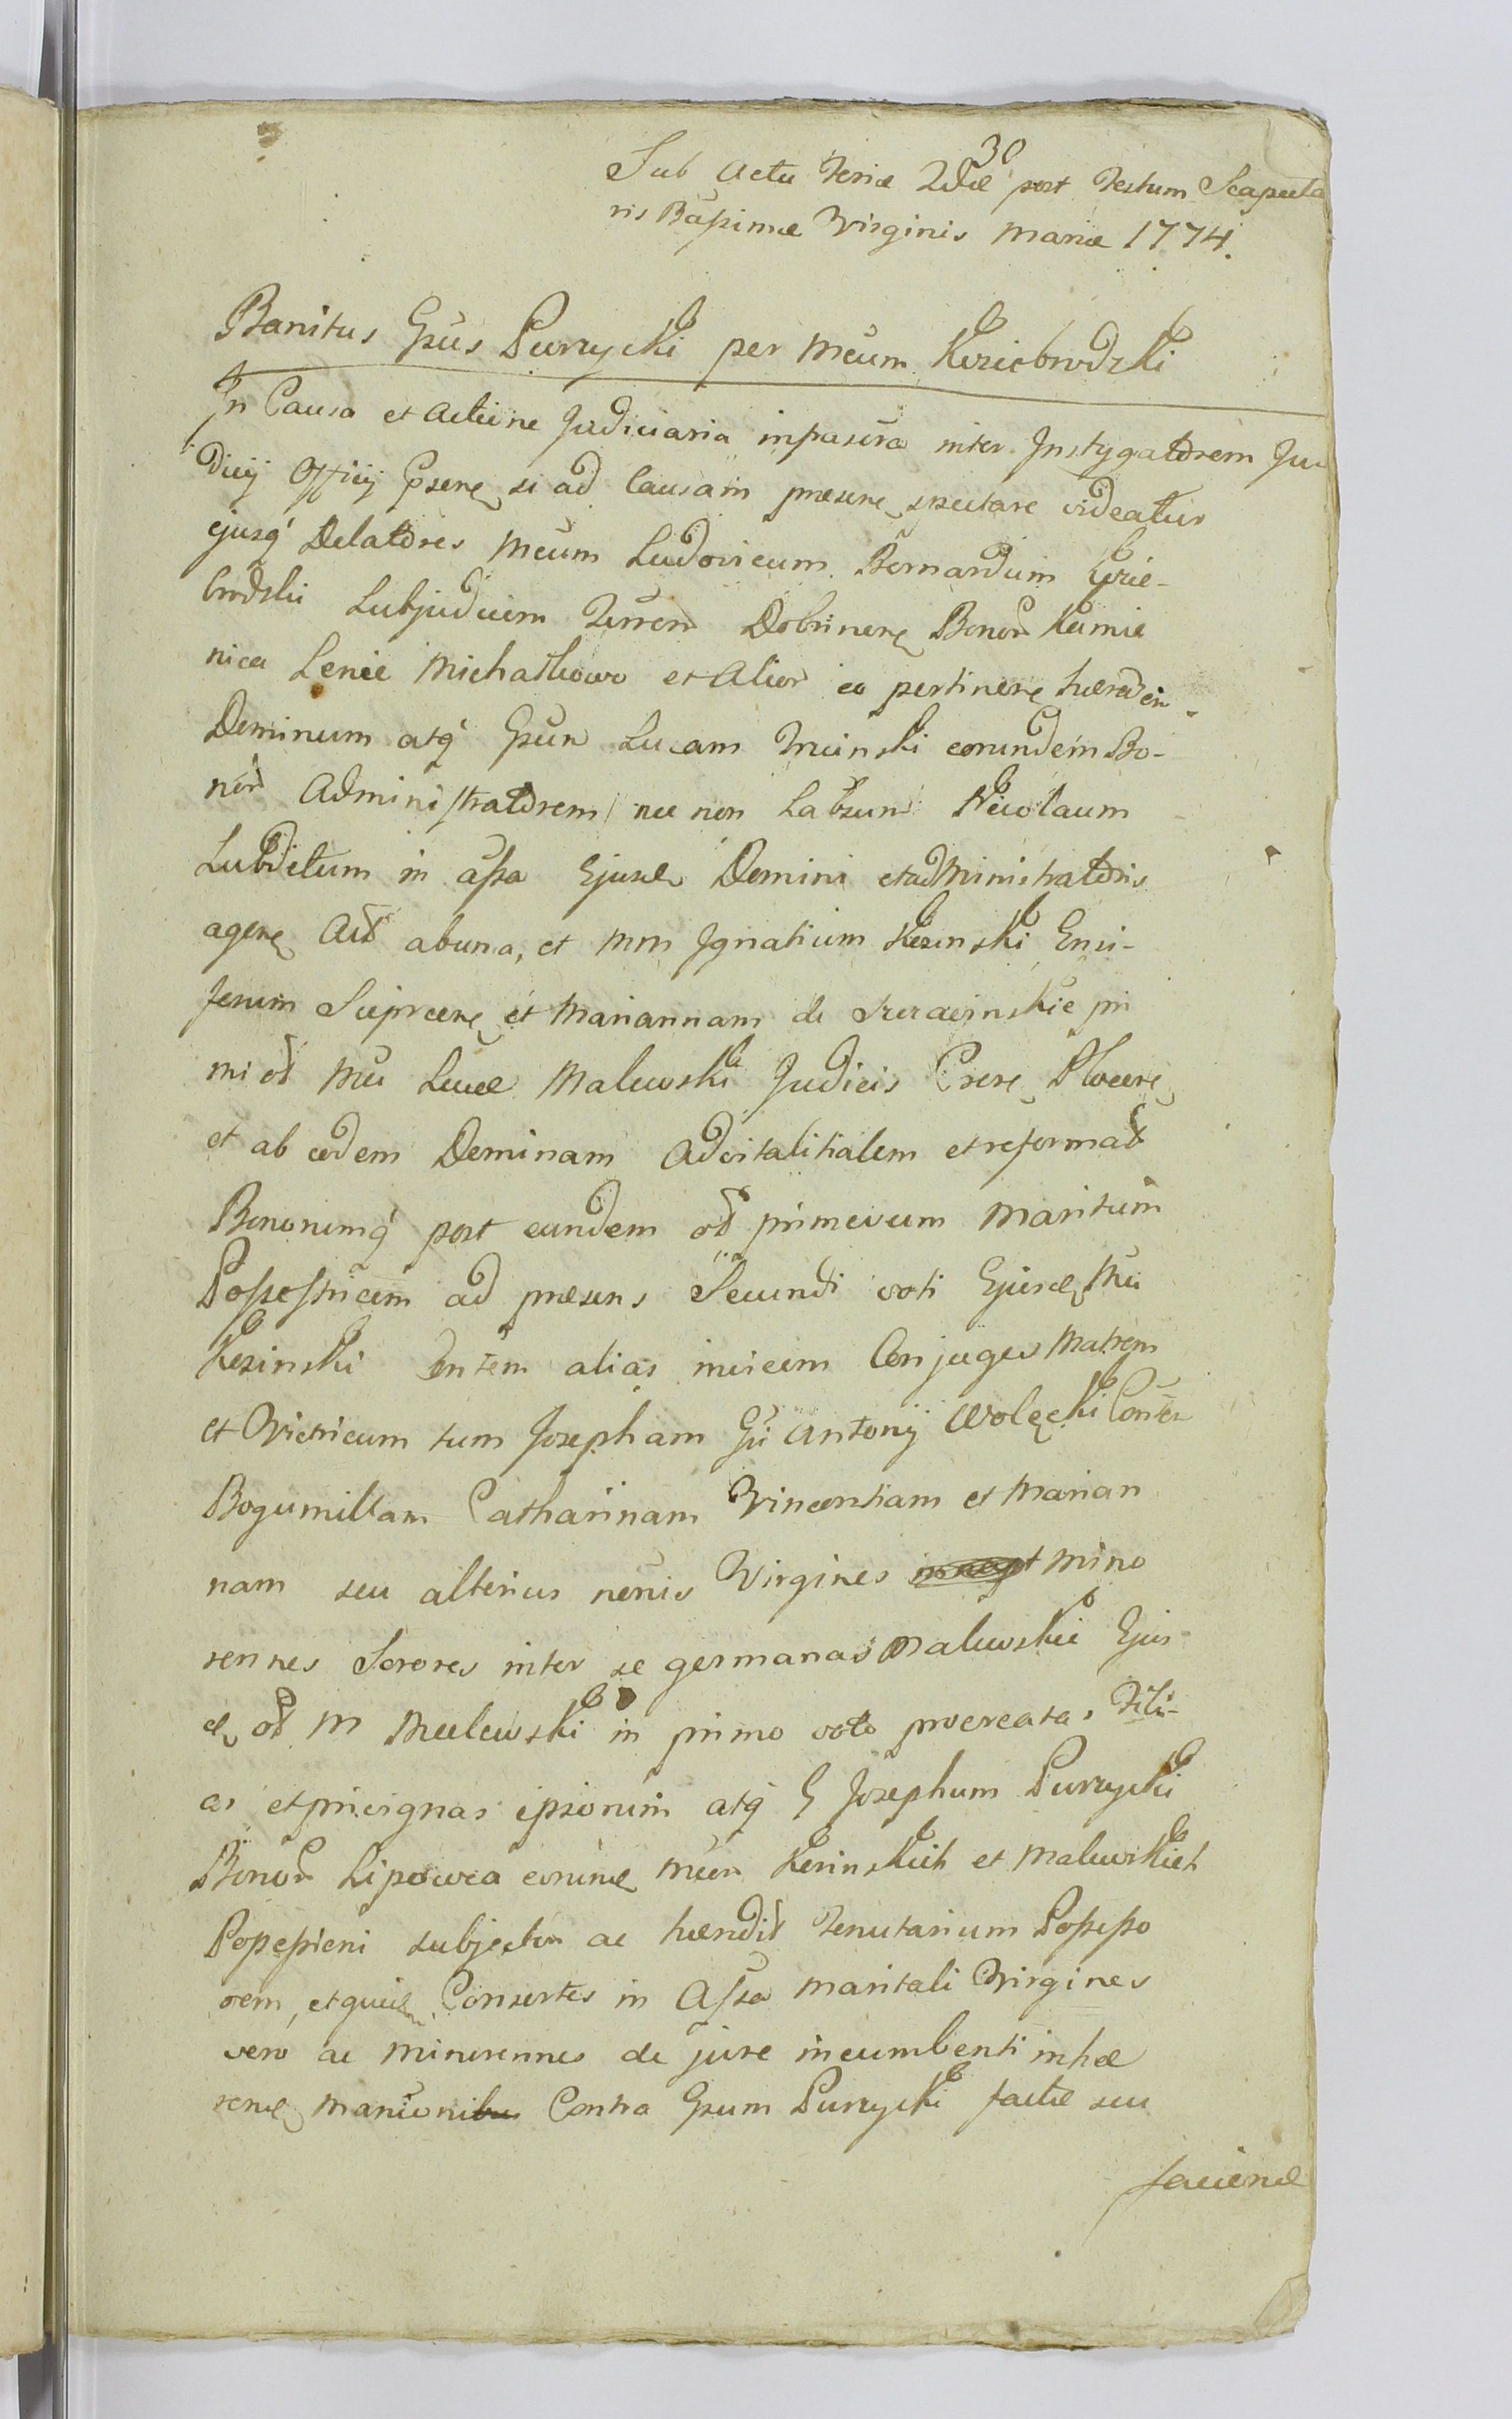 30
Sub Actu Feriæ 2dæ post Festum Scapula
ris Bassimæ Virginis Mariæ 1774.
Banitus Gsus Purzycki per Mcum Krziebrodzki
In Causa et Actione Judiciaria infascra inter Instygatorem Ju
dicij Officij Psens si ad Causam præsens spectare videatur
ejusq Delatores Mcum Ludovicum Bernardum Krzie-
brodzki Subjudicem Terren Dobrinens Bonor Kamie
nica Lenie Michałkowo et Alior eo pertinens hæredem
Dominum atq Gsum Lucam Trcinski eorundem Bo-
nor Administratorem nec non Labsum Nicolaum
Subditum in assa Ejusd Domini et administratoris
agen Act abuna, et Mm Ignatium Kezinski Ensi-
ferum Sieprcens et Mariannam de pri
mi ol Mci Lucæ Malewski Judicis Crens Plocens
et ab eodem Dominam Advitalitialem et reformat
Bonorumq post eundem ol primevum Maritum
Possestricem ad præsens Secundi voti Ejusd Mci
Kezinski Contem alias invicem Conjuges Matrem
et Vitricum tum Josepham Gi Antonij Wolęcki Conter
Bogumillam Catharinam Vincentiam et Marian
nam seu alterius nonis Virgines Mino
rennes Sorores inter se germanas Malewskie Ejus
d ol M Malewski in primo voto procreatas Fili-
as et privignas ipsorum atq G Josephum Purzycki
Bonor Lipowca eorund Mcor Kezinskich et Malewskich
Possessioni subjector ac hæredit Tenutarium Possesso
rem, et quid Consortes in Assa maritali Virgines
vero ac Minorennes de jure incumbenti inhæ
rend Manionibus Contra Gsum Purzycki factæ seu
faciend